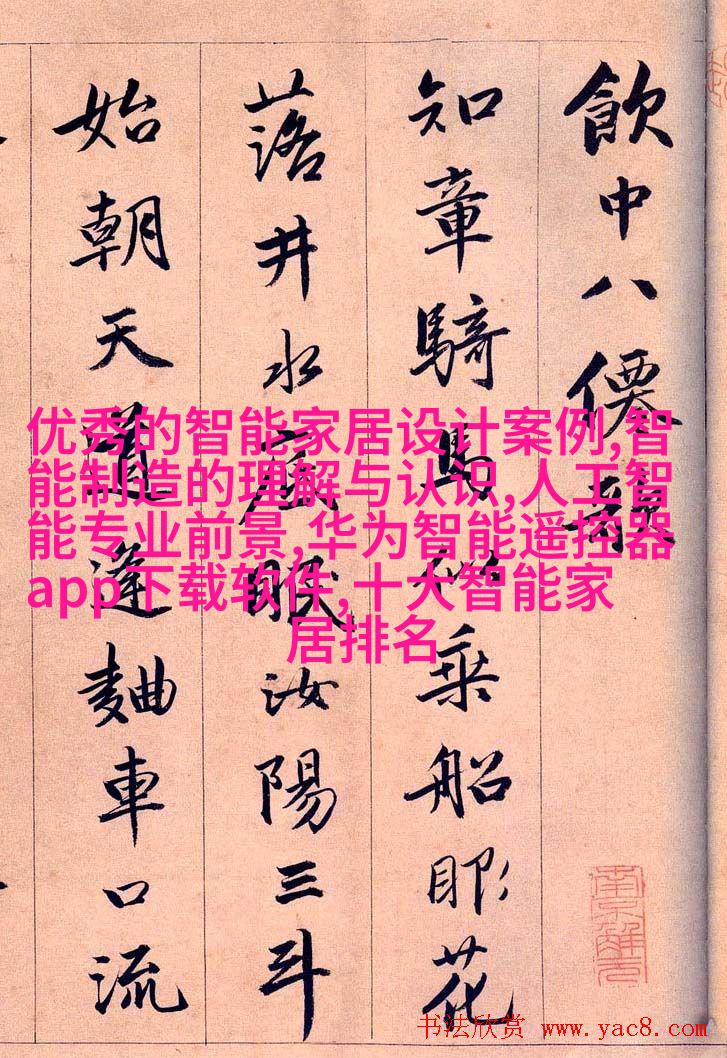 飲中八僊
知章騎馬似乘船眼花
落井水底眠汝陽三斗
始朝天道逢麯車口流
优秀的智能家居设计案例,智
能制造的理解与认识,人工智
能专业前景,华为智能遥控器
app下载软件,十大智能家
居排名
南京解元
书法欣赏 www.yac8.com